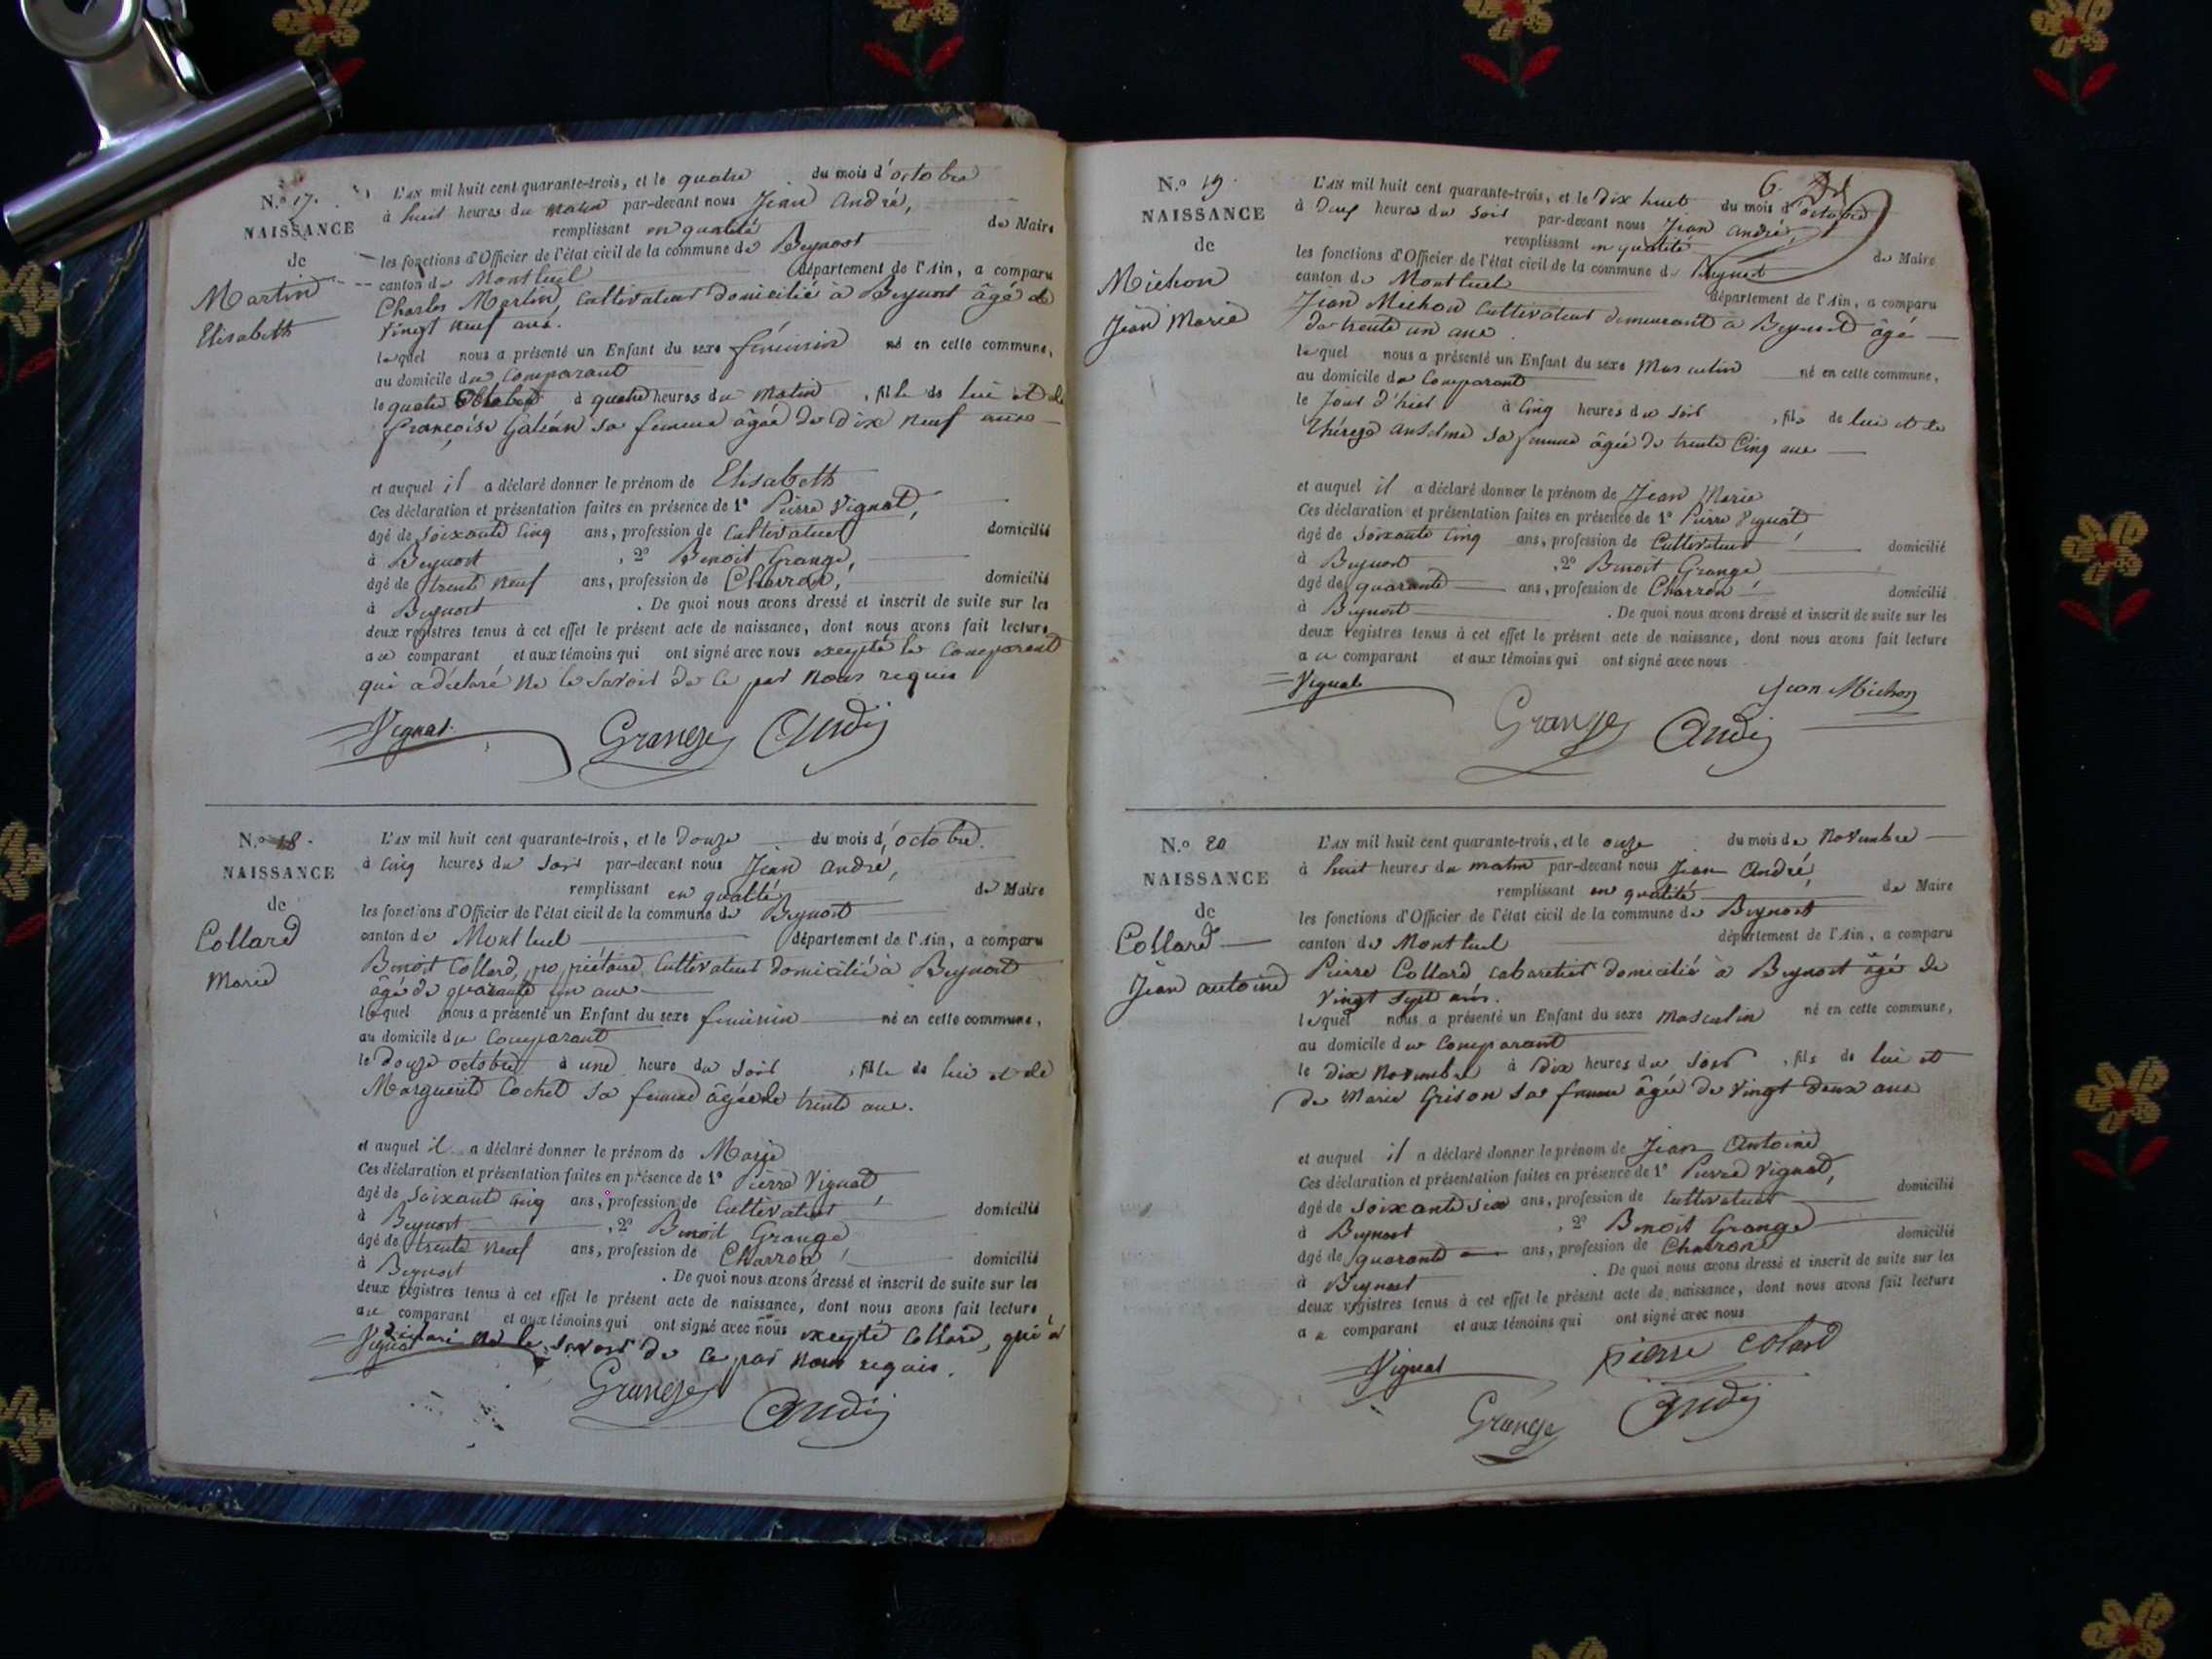 N.º 17.
NAISSANCE
de
Martin
Elisabeth
L'AN mil huit cent quarante-trois, et le quatre du mois d'octobre
à huit heures du matin par-devant nous Jean André,
remplissant en qualité de Maire
les fonctions d'Officier de l'état civil de la commune de Beynost
canton de Montluel département de l'Ain, a comparu
Charles Martin, Cultivateur domicilié à Beynost âgé de
vingt neuf ans.
lequel nous a présenté un Enfant du sexe féminin né en cette commune,
au domicile du Comparant
le quatre Octobre à quatre heures du matin, fille de lui et de
françoise Galéan sa femme âgée de Dix neuf ans
et auquel il a déclaré donner le prénom de Elisabeth
Ces déclaration et présentation faites en présence de 1º Pierre Vignat,
âgé de soixante cinq ans, profession de Cultivateur domicilié
à Beynost, 2º Benoit Grange,
âgé de trente neuf ans, profession de Charron, domicilié
à Beynost. De quoi nous avons dressé et inscrit de suite sur les
deux registres tenus à cet effet le présent acte de naissance, dont nous avons fait lecture
au comparant et aux témoins qui ont signé avec nous excepté le comparant
qui a déclaré ne le savoir de ce par nous requis
Vignat. Grange André
N.º 18.
NAISSANCE
de
Collard
Marie
L'AN mil huit cent quarante-trois, et le douze du mois d'octobre.
à cinq heures du soir par-devant nous Jean André,
remplissant en qualité de Maire
les fonctions d'Officier de l'état civil de la commune de Beynost
canton de Montluel département de l'Ain, a comparu
Benoit Collard, propriétaire, Cultivateur domicilié à Beynost
âgé de quarante un ans
lequel nous a présenté un Enfant du sexe féminin né en cette commune,
au domicile du Comparant
le douze octobre à une heure du soir, fille de lui et de
Marguerite Cochet sa femme âgée de trente ans.
et auquel il a déclaré donner le prénom de Marie
Ces déclaration et présentation faites en présence de 1º Pierre Vignat,
âgé de soixante cinq ans, profession de Cultivateur domicilié
à Beynost, 2º Benoit Grange
âgé de trente neuf ans, profession de Charron, domicilié
à Beynost. De quoi nous avons dressé et inscrit de suite sur les
deux registres tenus à cet effet le présent acte de naissance, dont nous avons fait lecture
au comparant et aux témoins qui ont signé avec nous excepté Collard, qui a
déclaré ne le savoir de ce par nous requis.
Vignat Grange André
N.º 19.
NAISSANCE
de
Michon
Jean Marie
6.
L'AN mil huit cent quarante-trois, et le Dix huit du mois d'octobre
à Deux heures du soir par-devant nous Jean André,
remplissant en qualité de Maire
les fonctions d'Officier de l'état civil de la commune de Beynost
canton de Montluel département de l'Ain, a comparu
Jean Michon Cultivateur demeurant à Beynost âgé
de trente un ans.
lequel nous a présenté un Enfant du sexe Masculin né en cette commune,
au domicile du Comparant
le Jour d'hier à cinq heures du soir, fils de lui et de
Thérèse Anselme sa femme âgée de trente Cinq ans
et auquel il a déclaré donner le prénom de Jean Marie
Ces déclaration et présentation faites en présence de 1º Pierre Vignat,
âgé de soixante cinq ans, profession de Cultivateur domicilié
à Beynost, 2º Benoit Grange
âgé de quarante ans, profession de Charron, domicilié
à Beynost. De quoi nous avons dressé et inscrit de suite sur les
deux registres tenus à cet effet le présent acte de naissance, dont nous avons fait lecture
au comparant et aux témoins qui ont signé avec nous
Vignat Jean Michon
Grange André
N.º 20
NAISSANCE
de
Collard
Jean antoine
L'AN mil huit cent quarante-trois, et le onze du mois de Novembre
à huit heures du matin par-devant nous Jean André,
remplissant en qualité de Maire
les fonctions d'Officier de l'état civil de la commune de Beynost
canton de Montluel département de l'Ain, a comparu
Pierre Collard cabaretier domicilié à Beynost âgé de
vingt sept ans.
lequel nous a présenté un Enfant du sexe masculin né en cette commune,
au domicile du Comparant
le dix Novembre à dix heures du soir, fils de lui et
de Marie Grison sa femme âgée de vingt deux ans
et auquel il a déclaré donner le prénom de Jean Antoine
Ces déclaration et présentation faites en présence de 1º Pierre Vignat,
âgé de soixante six ans, profession de Cultivateur domicilié
à Beynost, 2º Benoit Grange
âgé de quarante ans, profession de Charron domicilié
à Beynost. De quoi nous avons dressé et inscrit de suite sur les
deux registres tenus à cet effet le présent acte de naissance, dont nous avons fait lecture
au comparant et aux témoins qui ont signé avec nous
Vignat pierre colard
Grange André